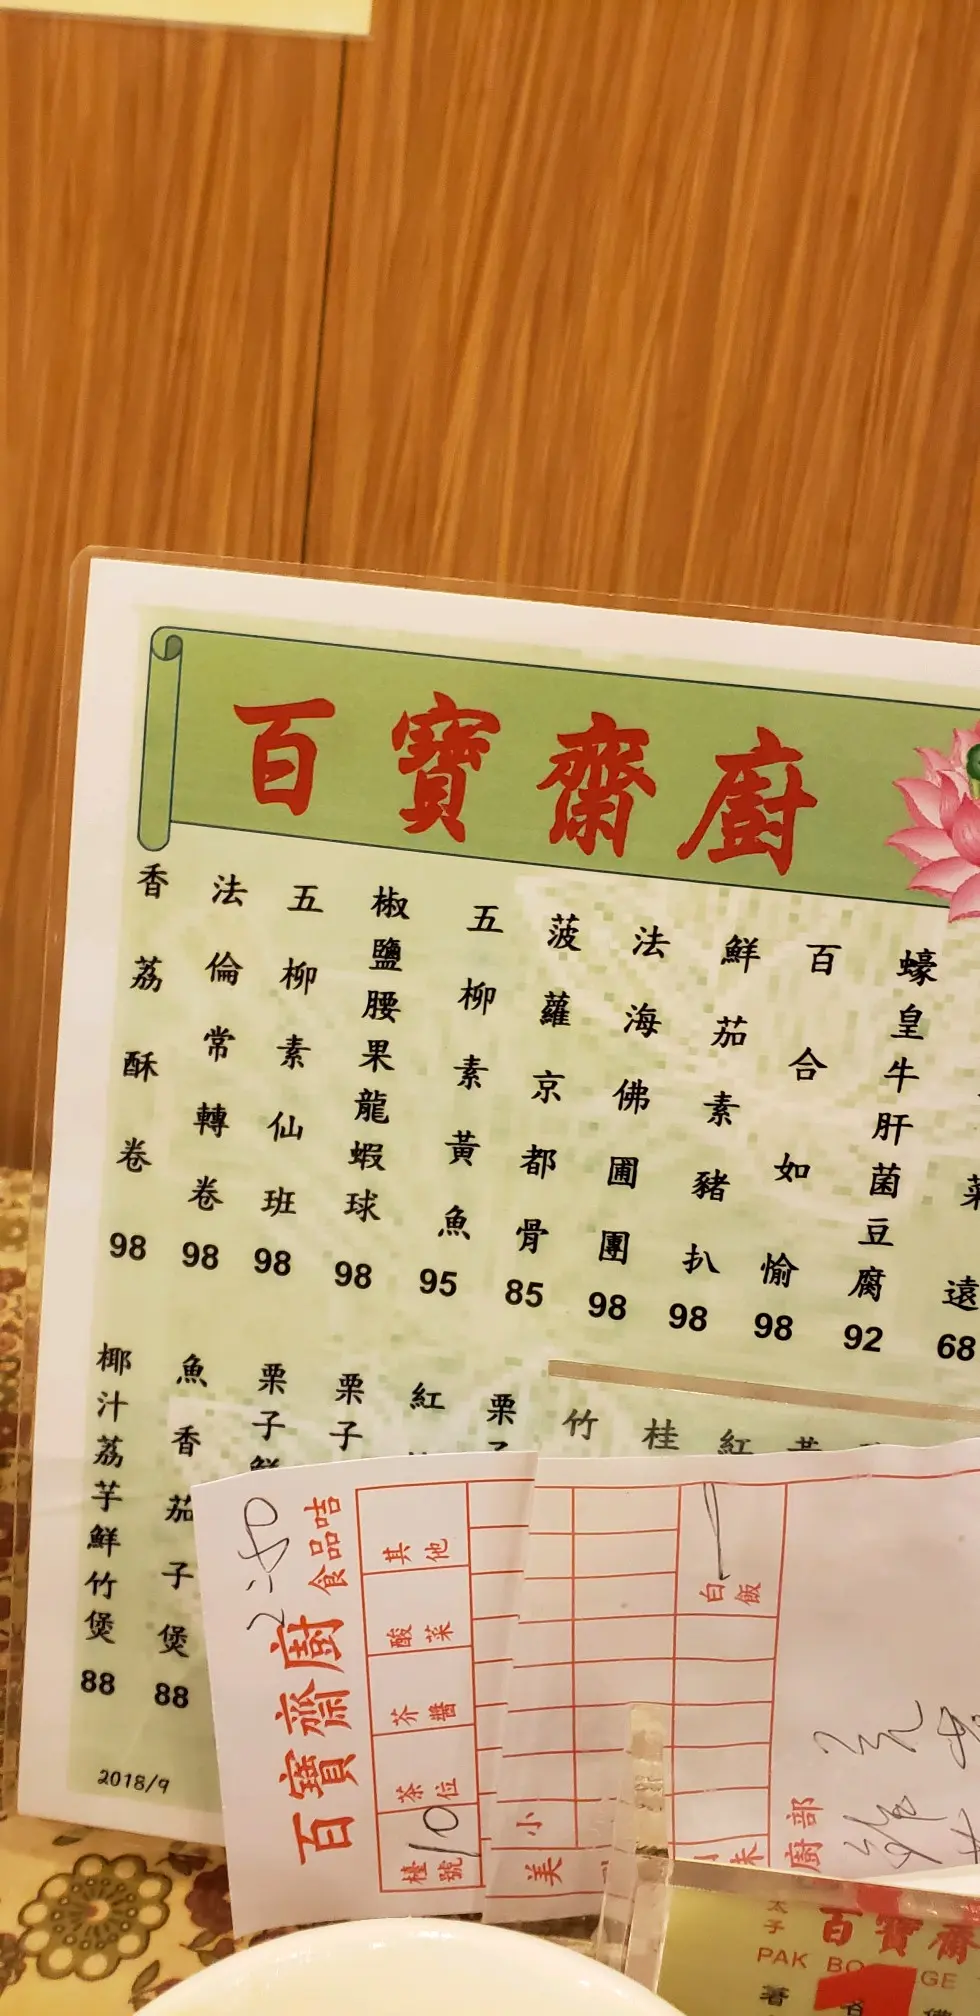 百寶齋廚
香荔酥卷 98
法倫常轉卷 98
五柳素仙班 98
椒鹽腰果龍蝦球 98
五柳素黃魚 95
菠蘿京都骨 85
法海佛圃團 98
鮮茄素豬扒 98
百合如愉 98
蠔皇牛肝菌豆腐 92
遠 68
椰汁荔芋鮮竹煲 88
魚香茄子煲 88
栗子鮮
栗子
紅
栗子
竹
桂
紅
2018/9
百寶齋廚
食品咭
檯號 10
茶位
芥醬
酸菜
其他
小
美
白飯
廚部
太子
百寶齋
PAK BO
GE
1